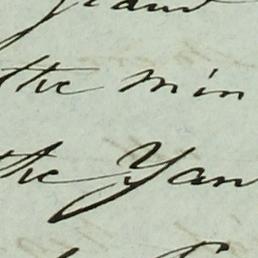 the min
the Yan